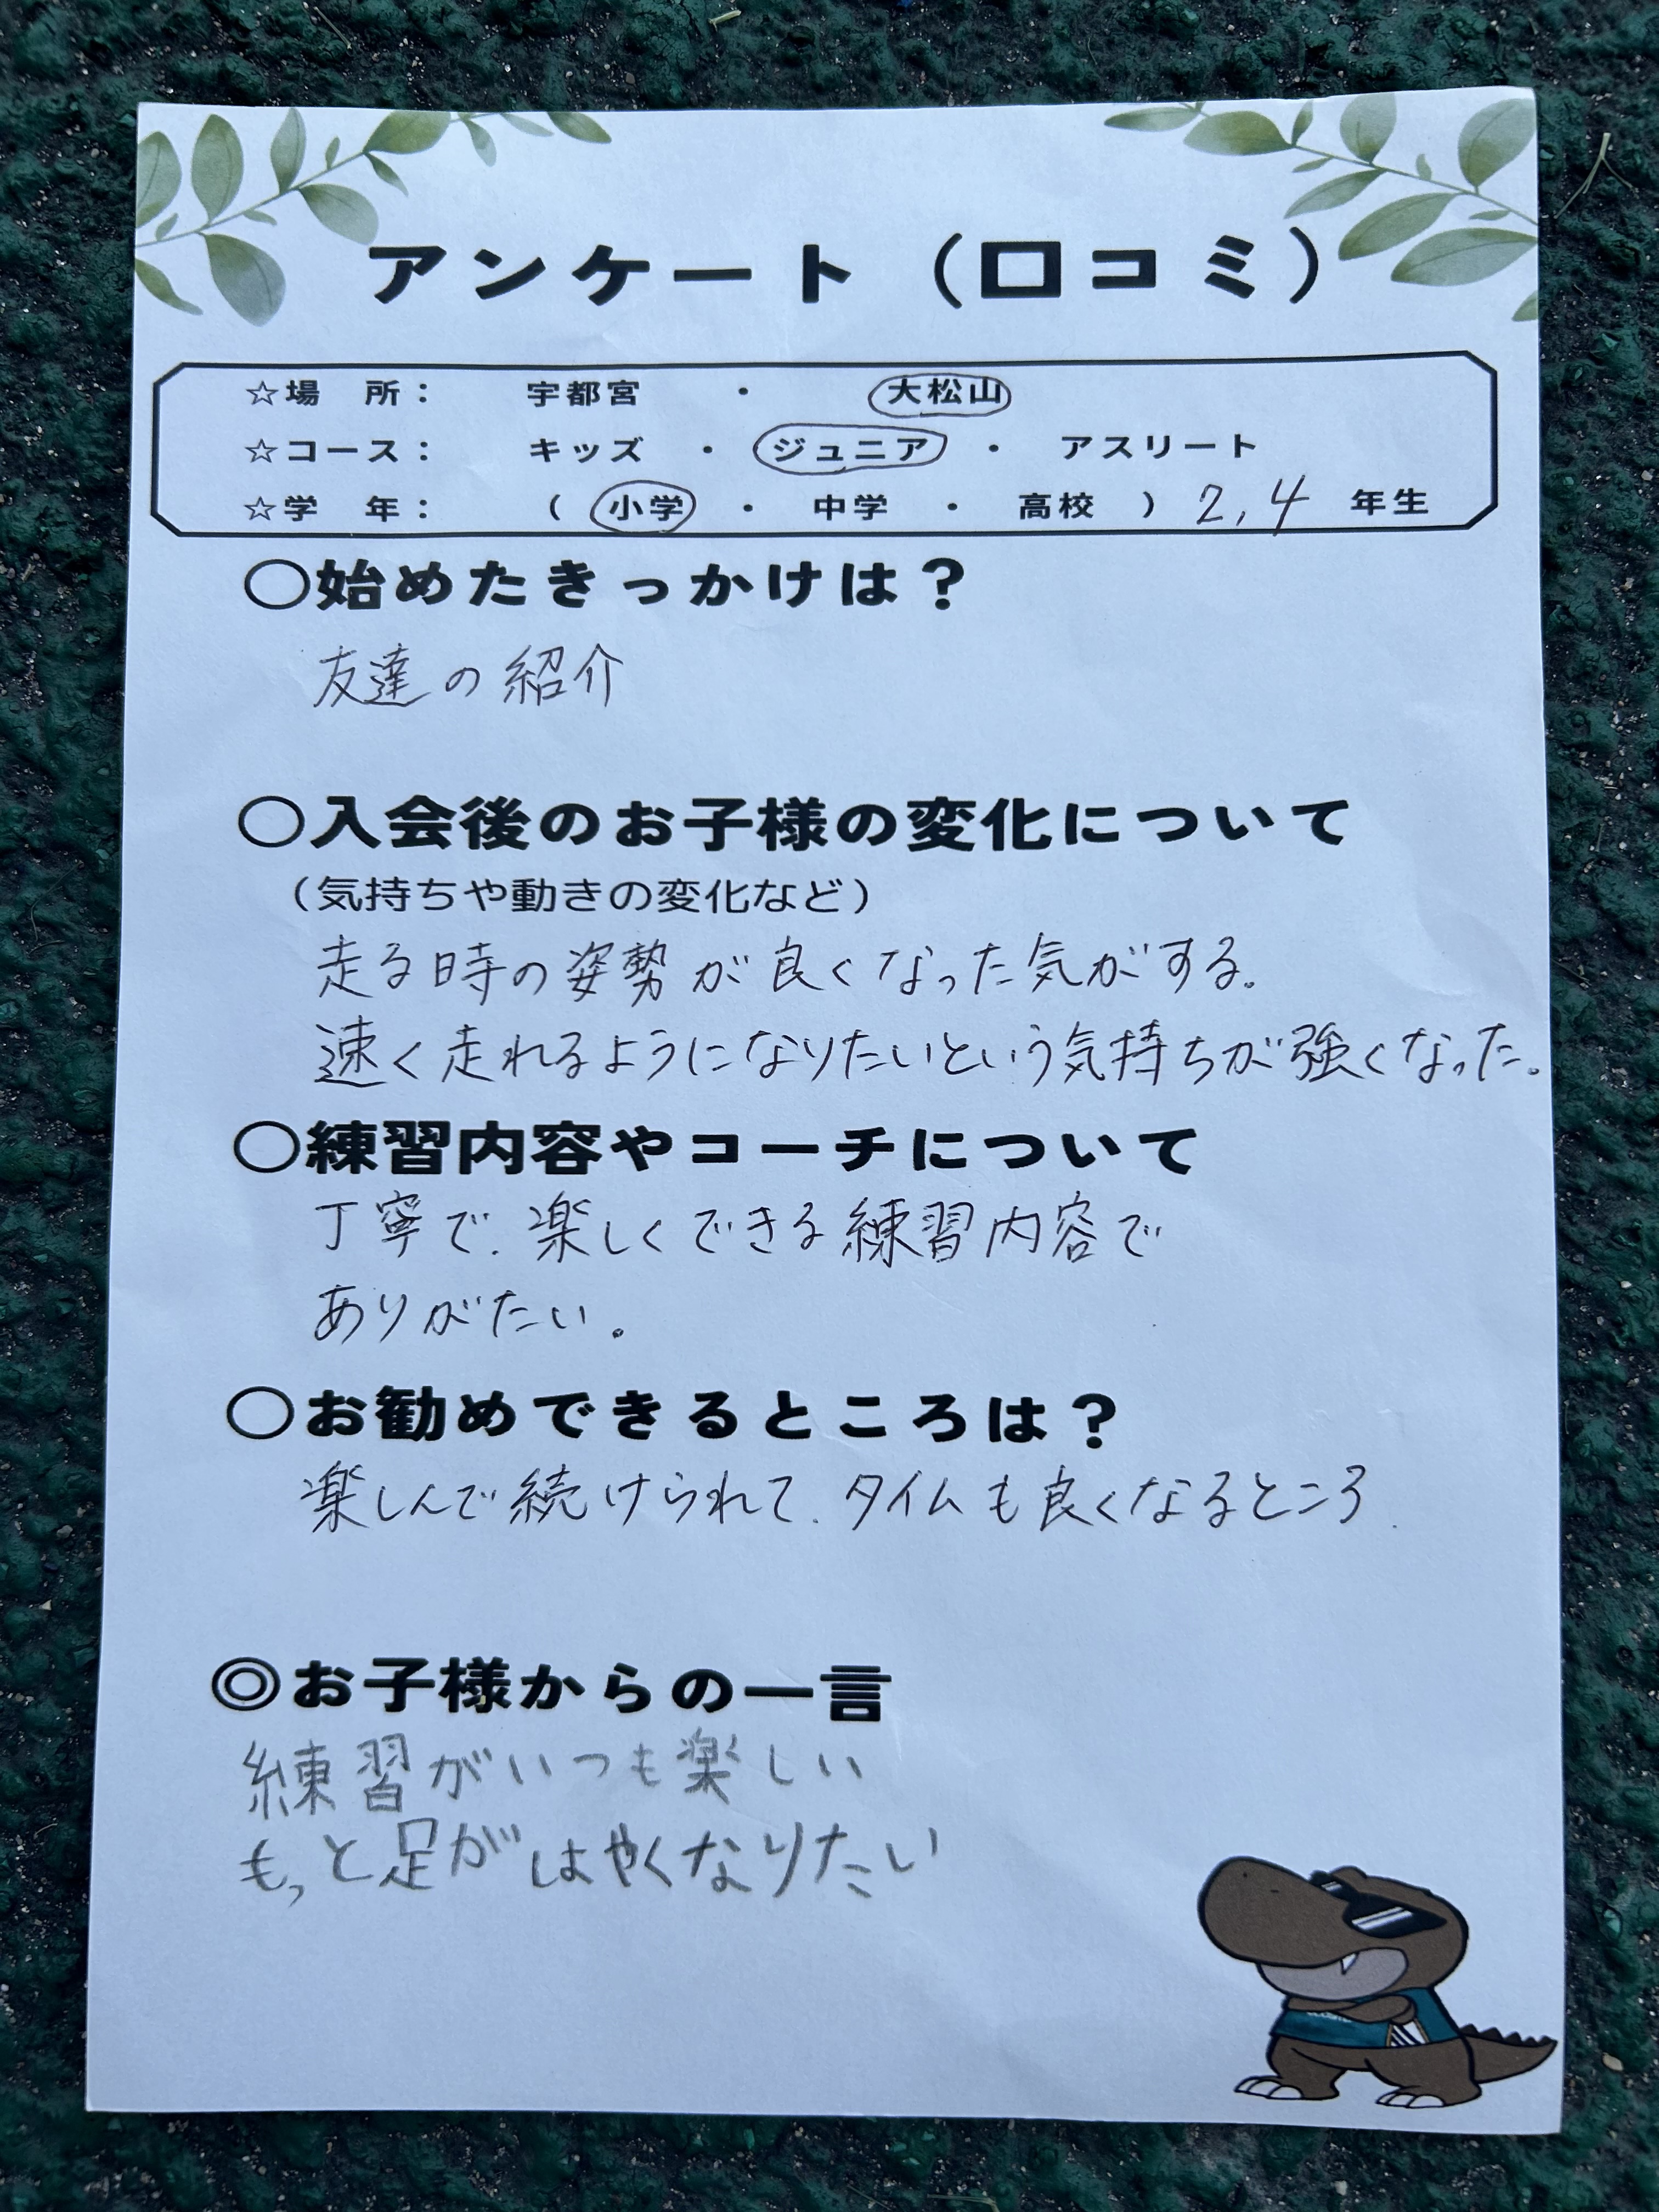 アンケート（口コミ）
☆場　所：　宇都宮　・　大松山
☆コース：　キッズ　・　ジュニア　・　アスリート
☆学　年：　（　小学　・　中学　・　高校　）2,4 年生
○始めたきっかけは？
友達の紹介
○入会後のお子様の変化について
（気持ちや動きの変化など）
走る時の姿勢が良くなった気がする。
速く走れるようになりたいという気持ちが強くなった。
○練習内容やコーチについて
丁寧で、楽しくできる練習内容で
ありがたい。
○お勧めできるところは？
楽しんで続けられて、タイムも良くなるところ.
◎お子様からの一言
練習がいつも楽しい
もっと足がはやくなりたい